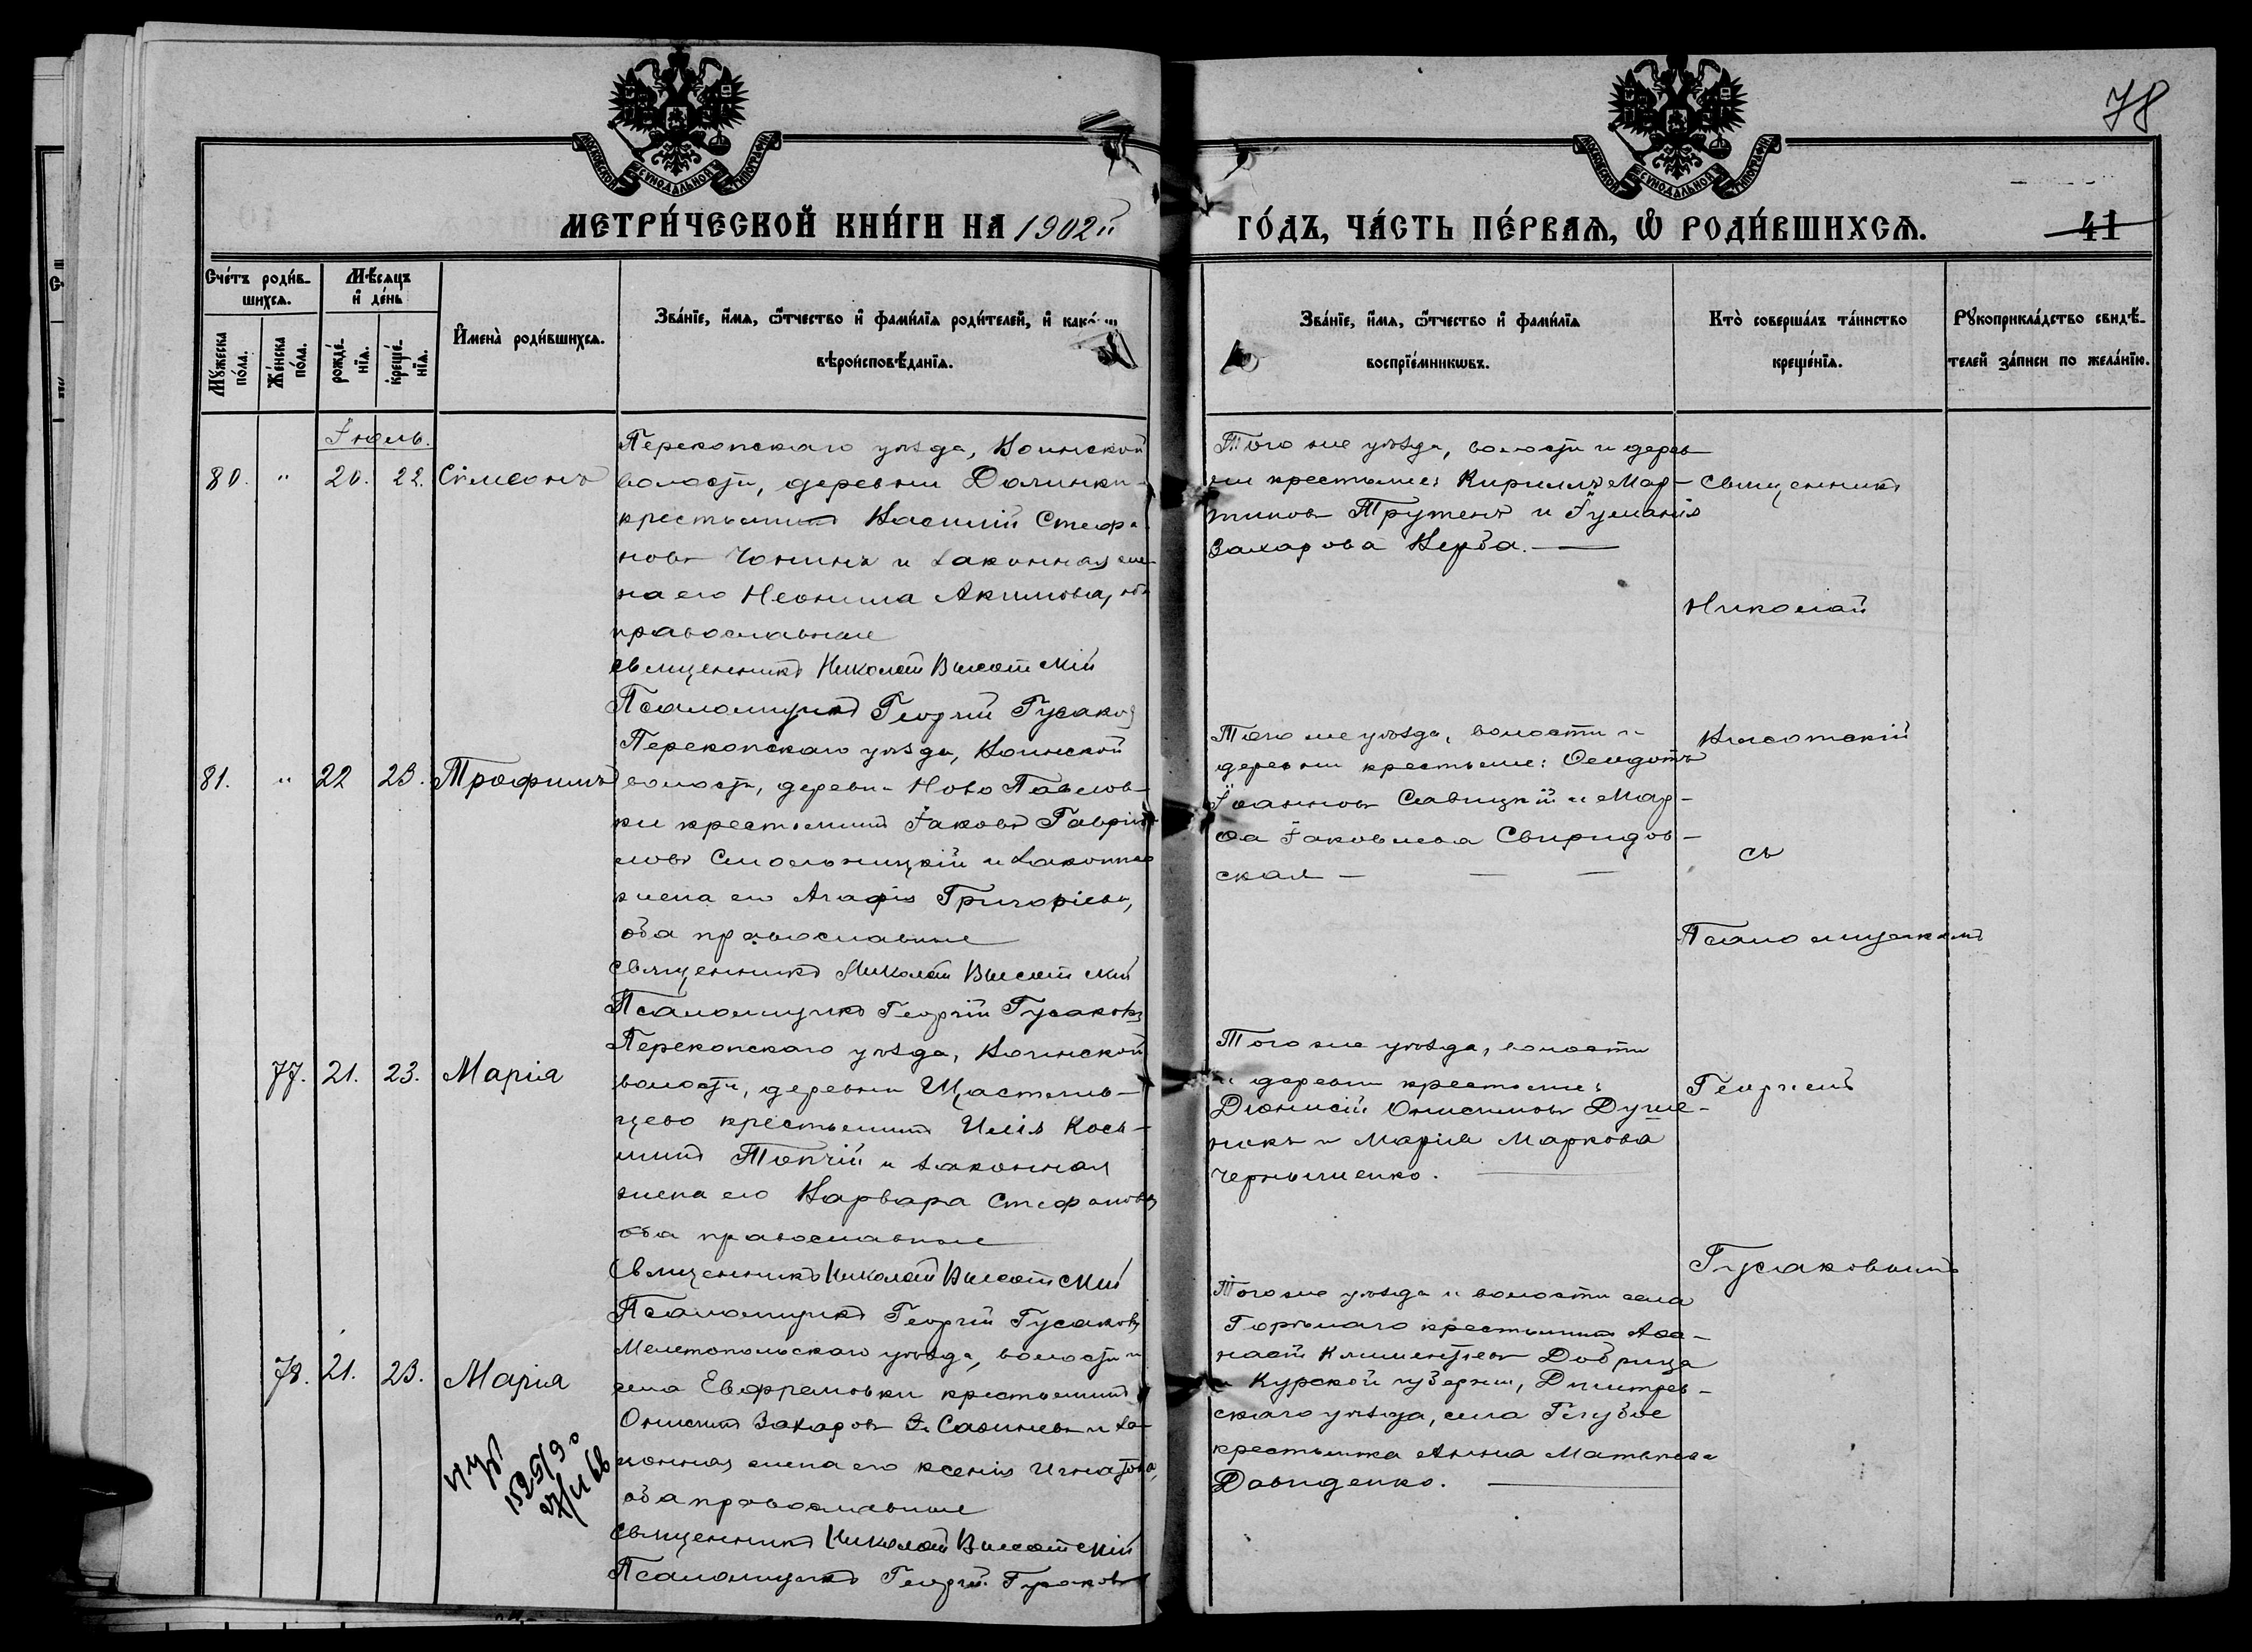 78
МОСКОВСКОЙ СѴНОДАЛЬНОЙ ТИПОГРАФІИ
МОСКОВСКОЙ СѴНОДАЛЬНОЙ ТИПОГРАФІИ
МЕТРИ́ЧЕСКОЙ КНИ́ГИ НА 1902й ГО́ДЪ, ЧА́СТЬ ПЕ́РВАѦ, Ѡ҆ РОДИ́ВШИХСѦ.
41
Сче́тъ роди́в-
шихсѧ.
Мꙋ́жеска
по́ла.
Же́нска
по́ла.
Мѣ́сѧцъ
и҆ де́нь
рожде́-
нїѧ.
креще́-
нїѧ.
И҆мена̀ роди́вшихсѧ.
Зва́нїе, и҆́мѧ, ѻ҆́тчество и҆ фами́лїѧ роди́телей, и҆
вѣроисповѣ́данїѧ.
Зва́нїе, и҆́мѧ, ѻ҆́тчество и҆ фами́лїѧ
воспрїе́мникѡвъ.
Кто̀ соверша́лъ та́инство
креще́нїѧ.
Рꙋкоприкла́дство свидѣ́-
телей за́писи по жела́нїю.
Іюль.
80. " 20. 22. Сімеонъ
Перекопскаго уѣзда, Воинской
волости, деревни Долинки
крестьянинъ Василій Стефа-
новъ Чонинъ и законная же-
на его Неонила Акимова, оба
православные
Священникъ Николай Высотскій
Псаломщикъ Георгій Гусаковъ
Того же уѣзда, волости и дерев-
ни крестьяне: Кириллъ Мар-
тиновъ Трутенъ и Іуліанія
Захарова Верба. —
81. " 22 23. Трофимъ
Перекопскаго уѣзда, Воинской
волости, деревни Ново Павлов-
ки крестьянинъ Іаковъ Гаврі-
ловъ Смольницкій и законная
жена его Агафія Григоріева,
оба православные
Священникъ Николай Высотскій
Псаломщикъ Георгій Гусаковъ
Того же уѣзда, волости и
деревни крестьяне: Ѳеодотъ
Іоанновъ Савицкій и Мар-
ѳа Іаковлева Свиридов-
ская — — —
77. 21. 23. Марія
Перекопскаго уѣзда, Воинской
волости, деревни Щастлив-
цево крестьянинъ Илія Кось-
минъ Топчій и законная
жена его Варвара Стефанова,
оба православные
Священникъ Николай Высотскій
Псаломщикъ Георгій Гусаковъ
Того же уѣзда, волости
и деревни крестьяне:
Діонисій Онисимовъ Душе-
никъ и Марія Маркова
Чернышенко. —
78. 21. 23. Марія
Мелитопольскаго уѣзда, волости и
села Евфремовки крестьянинъ
Онисимъ Захаровъ Савиневъ и за-
конная жена его Ксенія Игнатова,
оба православные
Священникъ Николай Высотскій
Псаломщикъ Георгій Гусаковъ
Того же уѣзда и волости села
Горѣлаго крестьянинъ Аѳа-
насій Климентіевъ Добрица
и Курской губерніи, Дмитріев-
скаго уѣзда, села Глубое
крестьянка Анна Матвѣева
Давиденко. —
Священникъ
Николай
Высотскій
съ
Псаломщикомъ
Георгіемъ
Гусаковымъ